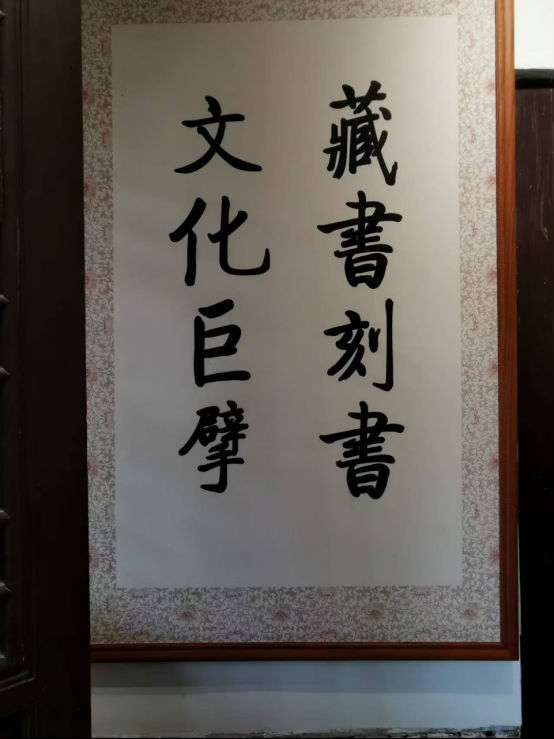 藏書刻書
文化巨擘